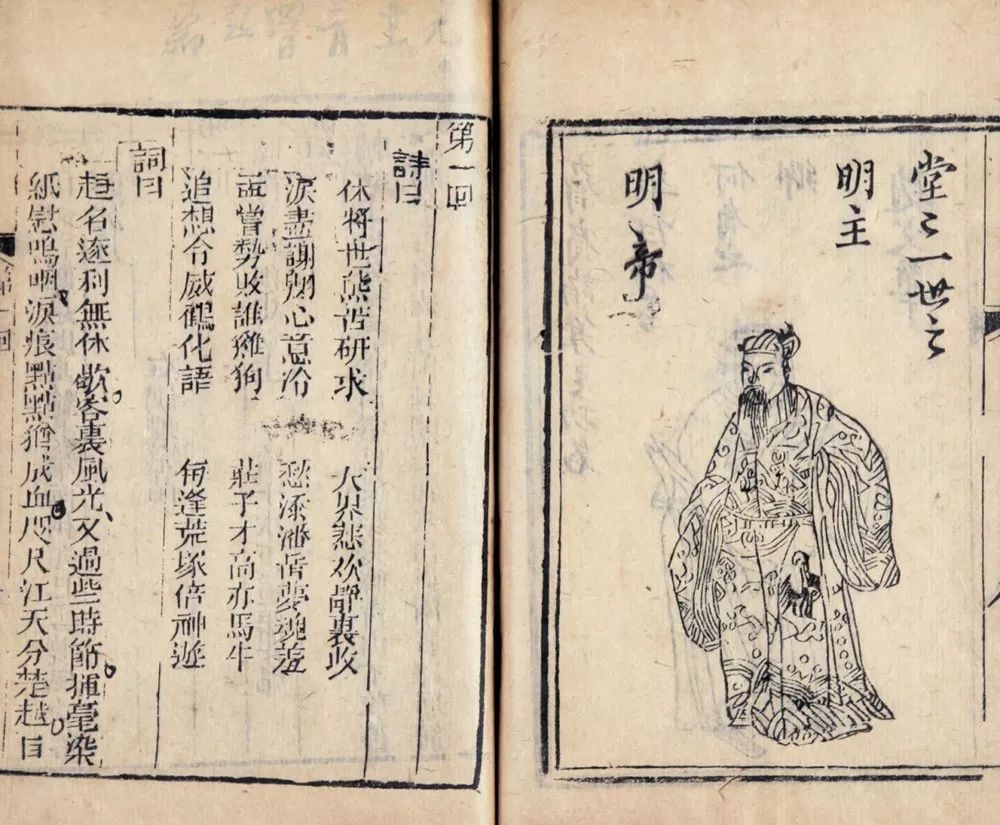 堂〻一世之
明主
明帝
第一回
詩曰
休將世態苦研求　大界悲歡靜裏收
淚盡謝翺心意冷　愁添潘岳夢魂羞
孟嘗勢敗誰雞狗　莊子才高亦馬牛
追想令威鶴化語　每逢荒塚倍神遊
詞曰
趨名逐利無休歇客裏風光又過些時節揮毫染
紙慰嗚咽淚痕點點猶成血咫尺江天分楚越目